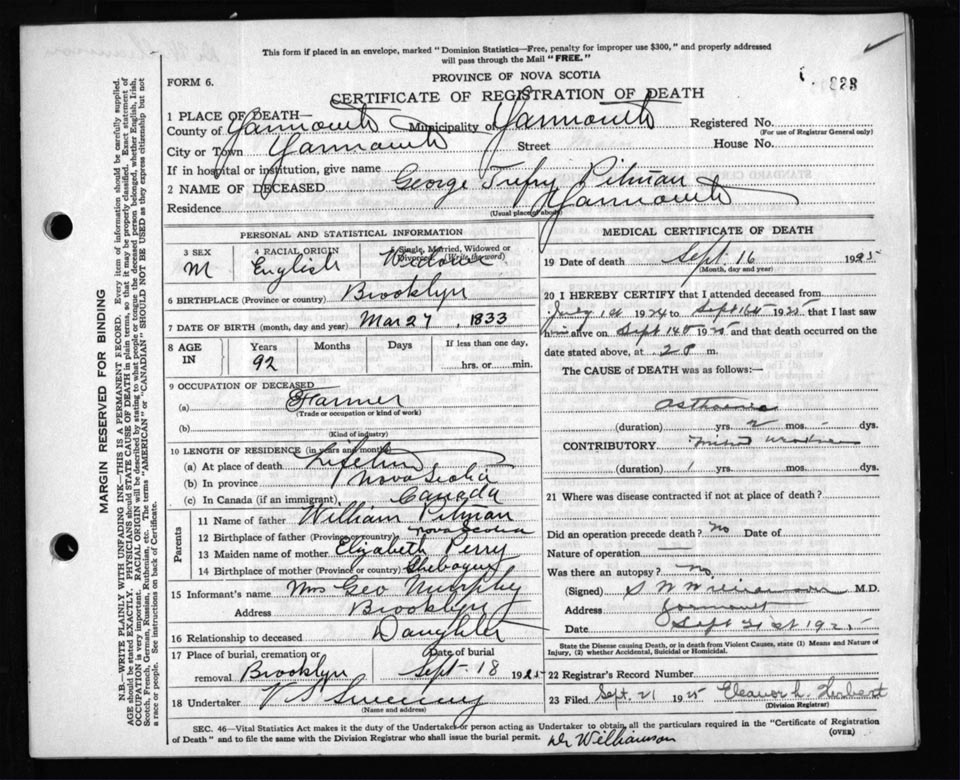 This form if placed in an envelope, marked "Dominion Statistics—Free, penalty for improper use $300," and properly addressed
will pass through the Mail "FREE."
PROVINCE OF NOVA SCOTIA
FORM 6.
CERTIFICATE OF REGISTRATION OF DEATH
1 PLACE OF DEATH—
County of Yarmouth Municipality of Yarmouth Registered No.
(For use of Registrar General only)
City or Town Yarmouth Street House No.
If in hospital or institution, give name
2 NAME OF DECEASED George Trefry Pitman
Residence Yarmouth
(Usual place of abode)
PERSONAL AND STATISTICAL INFORMATION
3 SEX 4 RACIAL ORIGIN 5 Single, Married, Widowed or
Divorced (Write the word)
M English Widower
6 BIRTHPLACE (Province or country) Brooklyn
7 DATE OF BIRTH (month, day and year) Mar 27, 1833
8 AGE IN Years Months Days If less than one day,
92 hrs. or min.
9 OCCUPATION OF DECEASED
(a) Farmer
(Trade or occupation or kind of work)
(b)
(Kind of industry)
10 LENGTH OF RESIDENCE (in years and months)
(a) At place of death Lifetime
(b) In province Nova Scotia
(c) In Canada (if an immigrant) Canada
Parents
11 Name of father William Pitman
12 Birthplace of father (Province or country) Nova Scotia
13 Maiden name of mother Elizabeth Perry
14 Birthplace of mother (Province or country) Chebogue
15 Informant's name Mrs Geo Murphy
Address Brooklyn
16 Relationship to deceased Daughter
17 Place of burial, cremation or Date of burial
removal Brooklyn Sept. 18 1925
18 Undertaker V S Sweeny
(Name and address)
MEDICAL CERTIFICATE OF DEATH
19 Date of death Sept. 16 1925
(Month, day and year)
20 I HEREBY CERTIFY that I attended deceased from
1st 1924 to Sept 16th 1925 that I last saw
him alive on Sept 14th 1925 and that death occurred on the
date stated above, at m.
The CAUSE of DEATH was as follows:—
(duration) yrs. 2 mos. dys.
CONTRIBUTORY
(duration) 1 yrs. mos. dys.
21 Where was disease contracted if not at place of death?
Did an operation precede death? no Date of
Nature of operation —
Was there an autopsy? no
(Signed) S W Williamson M.D.
Address Yarmouth
Date Sept 21st 1925
State the Disease causing Death, or in death from Violent Causes, state (1) Means and Nature of
Injury, (2) whether Accidental, Suicidal or Homicidal.
22 Registrar's Record Number
23 Filed Sept. 21 1925 Eleanor L. Herbert
(Division Registrar)
SEC. 46—Vital Statistics Act makes it the duty of the Undertaker or person acting as Undertaker to obtain all the particulars required in the "Certificate of Registration
of Death" and to file the same with the Division Registrar who shall issue the burial permit. (OVER)
Dr Williamson
MARGIN RESERVED FOR BINDING
N.B.—WRITE PLAINLY WITH UNFADING INK—THIS IS A PERMANENT RECORD. Every item of information should be carefully supplied.
AGE should be stated EXACTLY. PHYSICIANS should STATE CAUSE OF DEATH in plain terms, so that it may be properly classified. Exact statement of
OCCUPATION is very important. RACIAL ORIGIN will be described by stating to what people or tongue the deceased person belonged, whether English, Irish,
Scotch, French, German, Russian, Ruthenian, etc. The terms "AMERICAN" or "CANADIAN" SHOULD NOT BE USED as they express citizenship but not
a race or people. See instructions on back of Certificate.